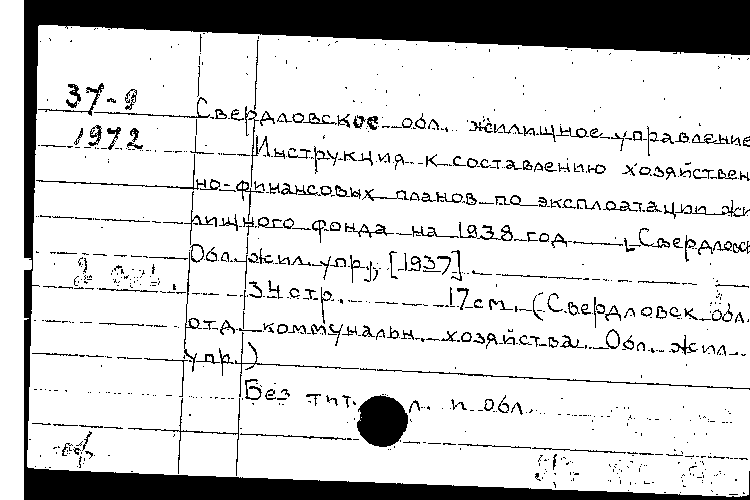 37-9
Свердловское обл. жилищное управление
1972
Инструкция к составлению хозяйствен
но-финансовых планов по эксплоатации жи
лищного фонда на 1938 год [Свердловск
Обл. жил. упр., [1937].
34 стр. 17см. (Свердловск обл.
отд. коммунальн. хозяйства. Обл. жил.
упр.)
Без тит. л. и обл.